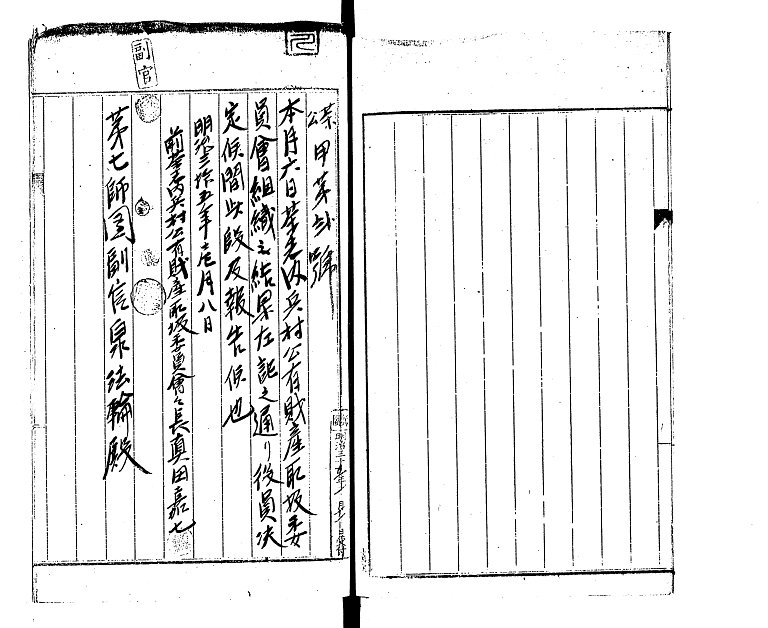 茶公甲第弐號
本月六日茶志内兵村公有財産取扱委
員會組織之結果左記之通リ役員決
定候間此段及報告候也
明治三拾五年壱月八日
茶志内兵村公有財産取扱委員會々長真田嘉七
第七師團副官泉法輪殿
副官
明治三十五年